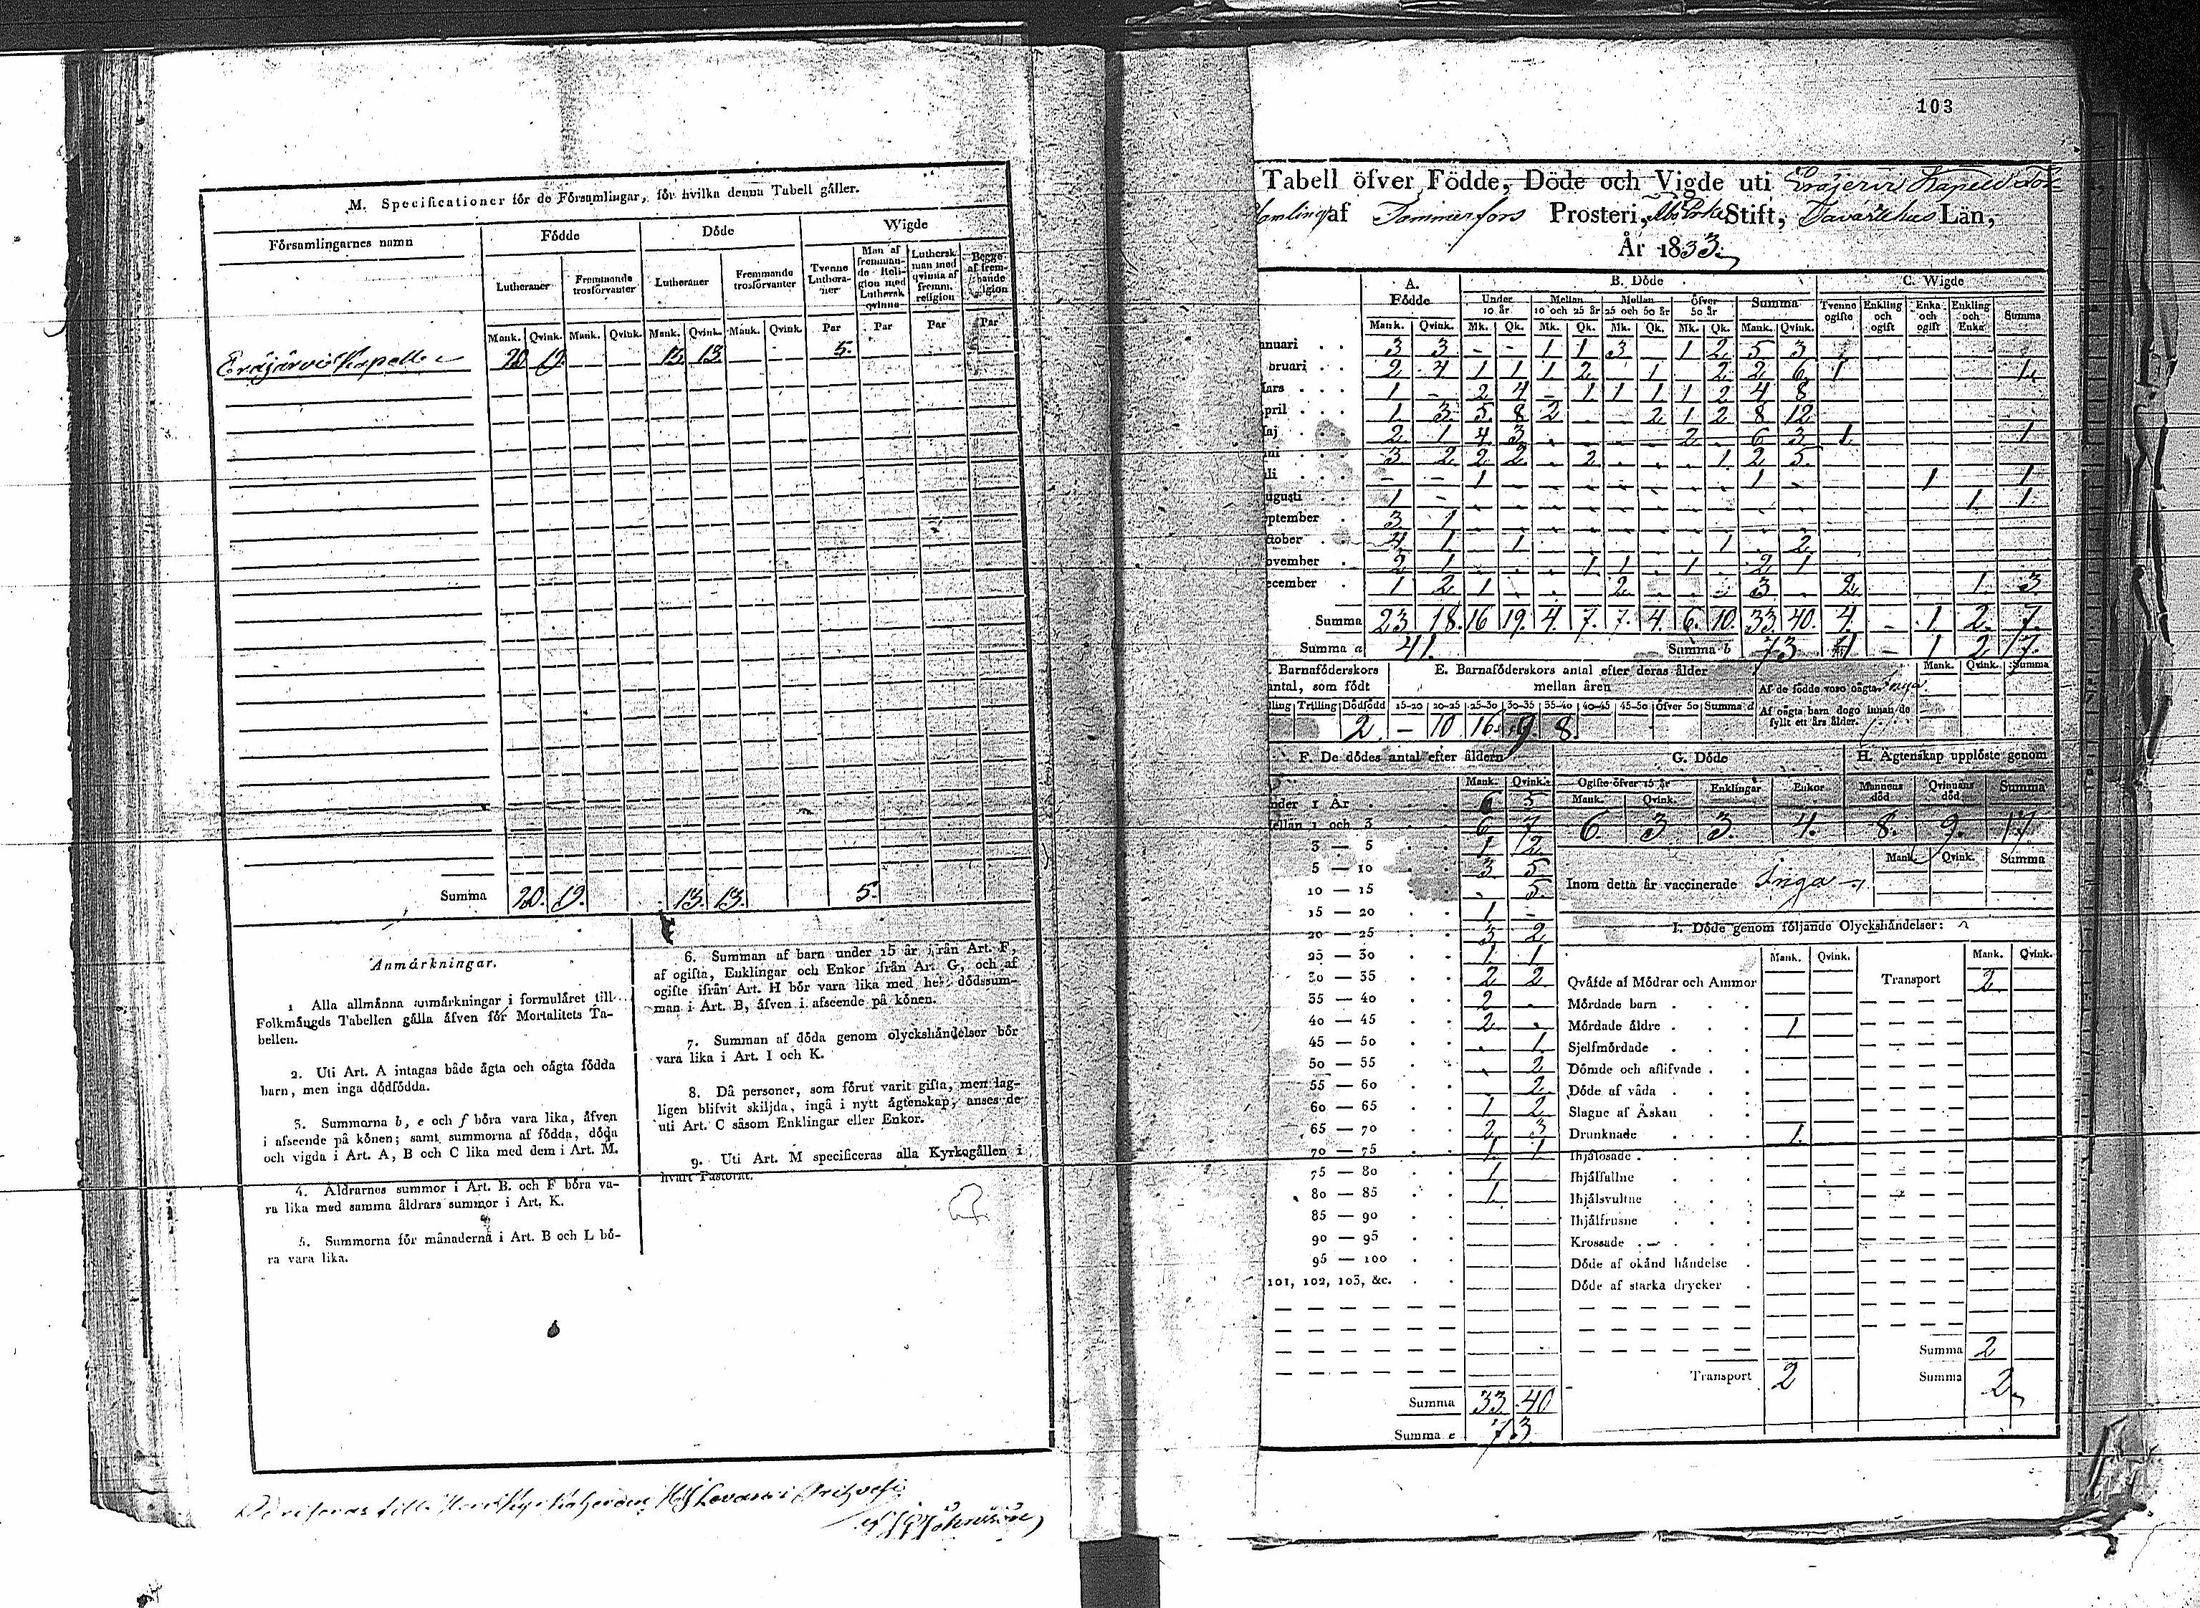 M. Specificationer för de Församlingar, för hvilka denna Tabell gäller.
Församlingarnes namn
Födde
Döde
Wigde
Lutheraner
Fremmande trosförvanter
Lutheraner
Fremmande trosförvanter
Tvenne Lutheraner
Man af fremmande Religion med Luthersk qvinna
Luthersk man med qvinna af fremm. religion
Begge af fremmande religion
Mank. Qvink. Mank. Qvink. Mank. Qvink. Mank. Qvink. Par Par Par Par
Eräjärvi Kapell 20 19. 13 13 5.
Summa 20. 19. 13. 13. 5.
Anmärkningar.
1 Alla allmänna anmärkningar i formuläret till
Folkmängds Tabellen gälla äfven för Mortalitets Ta-
bellen.
2. Uti Art. A intagas både ägta och oägta födda
barn, men inga dödfödda.
3. Summorna b, e och f böra vara lika, äfven
i afseende på könen; samt summorna af födda, döda
och vigda i Art. A, B och C lika med dem i Art. M.
4. Åldrarnes summor i Art. B. och F böra va-
ra lika med samma åldrars summor i Art. K.
5. Summorna för månaderna i Art. B och L bö-
ra vara lika.
6. Summan af barn under 15 år ifrån Art. F,
af ogifta, Enklingar och Enkor ifrån Art. G, och af
gifte ifrån Art. H bör vara lika med hela dödssum-
man i Art. B, äfven i afseende på könen.
7. Summan af döda genom olyckshändelser bör
vara lika i Art. I och K.
8. Då personer, som förut varit gifta, men lag-
ligen blifvit skiljda, ingå i nytt ägtenskap, anses de
uti Art. C såsom Enklingar eller Enkor.
9. Uti Art. M specificeras alla Kyrkogällen i
hvart Pastorat.
103
Tabell öfver Födde, Döde och Vigde uti Eräjervi Kapell För-
samling af Tammerfors Prosteri, Åbo Erke Stift, Tavastehus Län,
År 1833.
A. Födde
B. Döde
C. Wigde
Under 10 år
Mellan 10 och 25 år
Mellan 25 och 50 år
Öfver 50 år
Summa
Tvenne ogifte
Enkling och ogift
Enka och ogift
Enkling och Enka
Summa
Mank. Qvink. Mk. Qk. Mk. Qk. Mk. Qk. Mk. Qk. Mank. Qvink.
anuari 3 3 - - 1 1 3 1 2 5 3
bruari 2 4 1 1 1 2 1 2 2 6 1 1
Mars 1 - 2 4 - 1 1 1 1 2 4 8
pril 1 3 5 8 2 2 1 2 8 12
Maj 2 1 4 3 2 6 3 1 1
ni 3 2 2 2 2 1 2 5
li - - 1 1 - 1 1
ugusti 1 - 1 1
eptember 3 1
ktober 4 1 1 1 2
ovember 2 1 1 1 1 2 1
ecember 1 2 1 2 3 2 1 3
Summa 23 18. 16 19. 4. 7. 7. 4. 6. 10. 33 40. 4. - 1 2. 7
Summa a 41. Summa b 73 4 - 1 2 7.
Barnaföderskors antal, som födt
lling Trilling Dödfödd
2.
E. Barnaföderskors antal efter deras ålder mellan åren
15-20 20-25 25-30 30-35 35-40 40-45 45-50 Öfver 50 Summa d
- 10 16. 9. 8.
Mank. Qvink. Summa
Af de födde voro oägta Inga
Af oägta barn dogo innan de fyllt ett års ålder.
F. De dödes antal efter åldern
Mank. Qvink.
nder 1 År 6 5
ellan 1 och 3 6 7
3 — 5 1 2
5 — 10 3 5
10 — 15 - 5.
15 — 20 1 -
20 — 25 3 2
25 — 30 1 1
30 — 35 2 2
35 — 40 2 -
40 — 45 2 -
45 — 50 - 1
50 — 55 2
55 — 60 2
60 — 65 1 2
65 — 70 2 3
70 — 75 1 1
75 — 80 1
80 — 85 1
85 — 90
90 — 95
95 — 100
101, 102, 103, &c.
Summa 33 40
Summa e 73
G. Döde
Ogifte öfver 15 år
Mank. Qvink. Enklingar Enkor
6 3 3. 4.
H. Ägtenskap upplöste genom
Mannens död Qvinnans död Summa
8. 9. 17
Mank. Qvink. Summa
Inom detta år vaccinerade Inga
I. Döde genom följande Olyckshändelser:
Mank. Qvink. Mank. Qvink.
Qväfde af Mödrar och Ammor Transport 2
Mördade barn
Mördade äldre 1
Sjelfmördade
Dömde och aflifvade
Döde af våda
Slagne af Åskan
Drunknade 1
Ihjälosade
Ihjälfallne
Ihjälsvultne
Ihjälfrusne
Krossade
Döde af okänd händelse
Döde af starka drycker
Summa 2
Transport 2 Summa 2